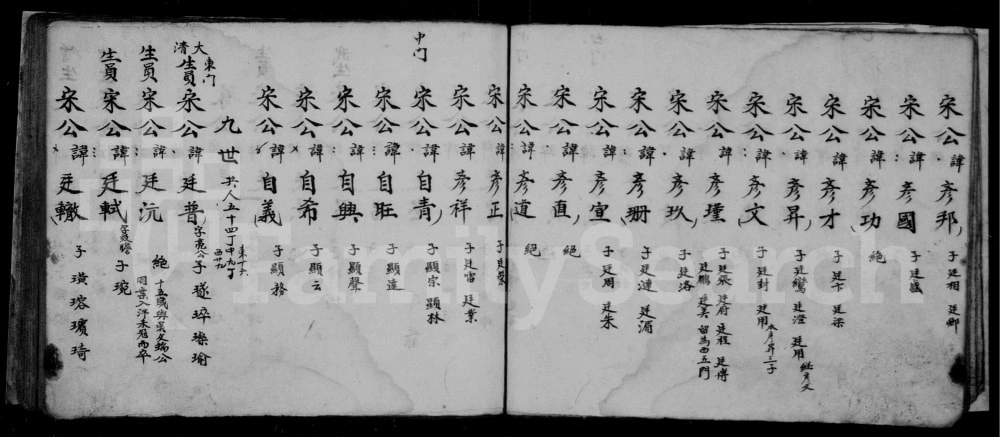 宋公諱彥邦 子廷相 廷鄉
宋公諱彥國 子廷盛
宋公諱彥功 絕
宋公諱彥才 子廷下 廷梁
宋公諱彥昇 子廷鸞 廷澄 廷用 繼彥文
宋公諱彥文 子廷封 廷用 本彥昇三子
宋公諱彥瑾 子廷張 廷府 廷程 廷傅 廷鵬 廷美 留為西五門
宋公諱彥玖 子廷洛
宋公諱彥珊 子廷漣 廷湄
宋公諱彥宣 子廷周 廷朱
宋公諱彥直 絕
宋公諱彥道 絕
宋公諱彥正 子廷榮
宋公諱彥祥 子廷富 廷業
中门
宋公諱自青 子顯宗 顯林
宋公諱自旺 子顯達
宋公諱自興 子顯聲
宋公諱自希 子顯云
宋公諱自義 子顯務
九世 共人五十四丁中九丁 東十六 西廿九
大東门
清生員宋公諱廷普 子璲 琗 璨 瑜
生員宋公諱廷沅 絕 十五歲與吳文端公同案入泮未冠而卒
生員宋公諱廷軾 子琬
宋公諱廷轍 子璜 瑢 璸 琦
FamilySearch